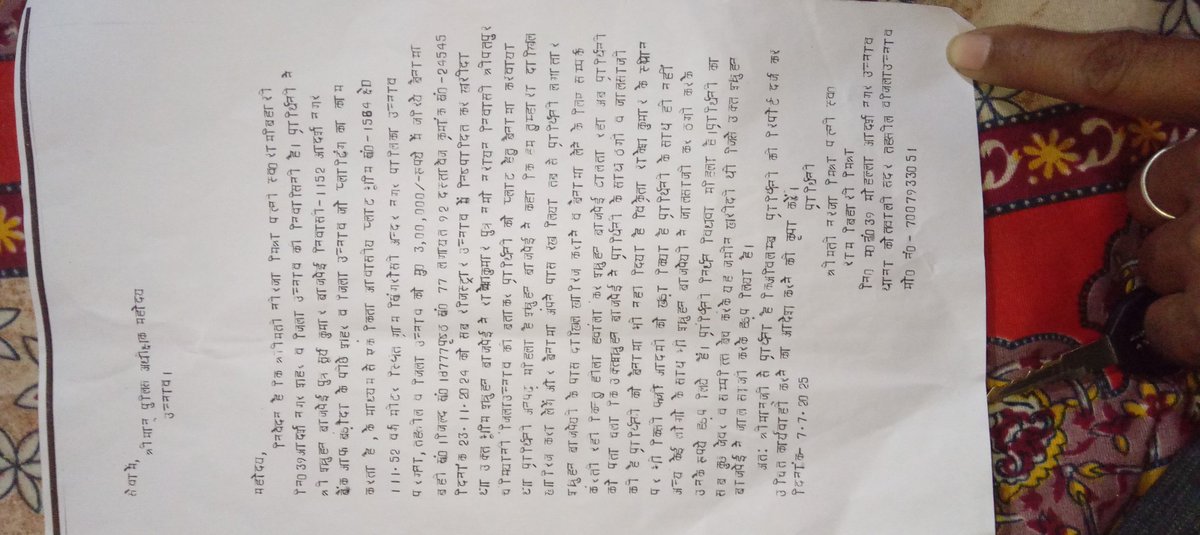 सेवा में,
श्रीमान् पुलिस अधीक्षक महोदय
उन्नाव।
महोदय,
निवेदन है कि श्रीमती नीरजा मिश्रा पत्नी स्व0 रामबिहारी
नि0 39 आदर्श नगर शहर व जिला उन्नाव की निवासिनी है। प्रार्थिनी ने
श्री मृदुल बाजपेई पुत्र कुमार बाजपेई निवासी- 1152 आदर्श नगर
बैंक आफ बड़ौदा के पीछे शहर व जिला उन्नाव जो प्लाटिंग का काम
करता है, के माध्यम से एक किता आवासीय प्लाट भूमि सं0-1584 क्षे0
111.52 वर्ग मीटर स्थित ग्राम अन्दर नगर पालिका उन्नाव
परगना, तहसील व जिला उन्नाव को मु0 3,00,000/-रुपये में जरिये बैनामा
बही सं0 1 जिल्द सं0 16777 पृष्ठ सं0 77 लगायत 92 दस्तावेज क्रमांक सं0-24545
दिनांक 23.11.2024 को सब रजिस्ट्रार उन्नाव में निष्पादित कर खरीदा
था उक्त भूमि मृदुल बाजपेई ने राकेश कुमार पुत्र श्री नारायन निवासी
जिला उन्नाव को बताकर प्रार्थिनी को प्लाट हेतु बैनामा करवाया
था प्रार्थिनी अनपढ़ महिला है मृदुल बाजपेई ने कहा कि हम तुम्हारा दाखिल
खारिज करा लेंगे और बैनामा अपने पास रख लिया तब से प्रार्थिनी लगातार
मृदुल बाजपेयी के पास दाखिल खारिज कराने व बैनामा लेने के लिए सम्पर्क
करती रही किन्तु हीला हवाली कर मृदुल बाजपेई टालता रहा अब प्रार्थिनी
को पता चला कि उक्त मृदुल बाजपेई ने प्रार्थिनी के साथ ठगी व जालसाजी
की है प्रार्थिनी को बैनामा भी नहीं दिया है राकेश कुमार के स्थान
पर भी किसी फर्जी आदमी को खड़ा किया है प्रार्थिनी के साथ ही नहीं
अन्य कई लोगों के साथ भी मृदुल बाजपेयी ने जालसाजी कर ठगी करके
उनके रूपये हड़प लिये हैं। प्रार्थिनी विधवा महिला है प्रार्थिनी का
सब कुछ जेवर व सम्पत्ति बेच करके यह जमीन खरीदी थी जिसे उक्त मृदुल
बाजपेई ने जालसाजी करके हड़प लिया है।
अतः श्रीमानजी से प्रार्थना है कि अविलम्ब प्रार्थिनी की रिपोर्ट दर्ज कर
उचित कार्यवाही करने का आदेश करने की कृपा करें।
दिनांक- 7.7.2025 प्रार्थिनी
श्रीमती नीरजा मिश्रा पत्नी स्व0
राम बिहारी मिश्रा
नि0 म0सं0 39 मोहल्ला आदर्श नगर उन्नाव
थाना कोतवाली सदर तहसील व जिला उन्नाव
मो0 नं0- 7007933051